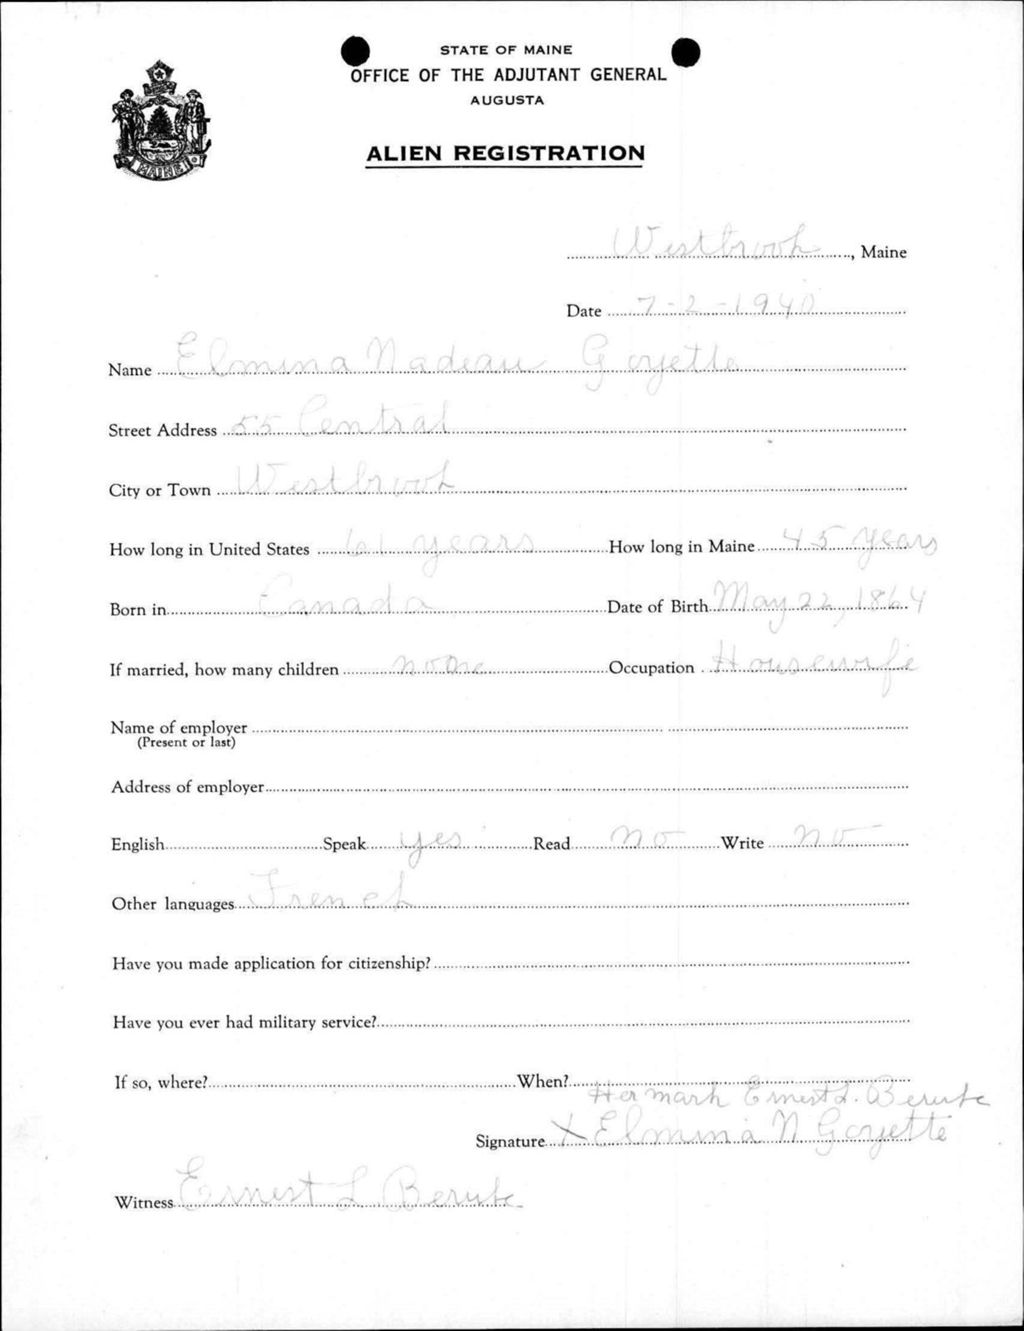 STATE OF MAINE
OFFICE OF THE ADJUTANT GENERAL
AUGUSTA
ALIEN REGISTRATION
MAINE
Westbrook, Maine
Date 7-2-1940
Name Elmina Nadeau Goyette
Street Address 55 Central
City or Town Westbrook
How long in United States 61 years How long in Maine 45 years
Born in Canada Date of Birth May 22, 1864
If married, how many children none Occupation Housewife
Name of employer
(Present or last)
Address of employer
English Speak yes Read no Write no
Other languages French
Have you made application for citizenship?
Have you ever had military service?
If so, where? When?
Her mark Ernest L. Berube
Signature X Elmina N Goyette
Witness Ernest L Berube